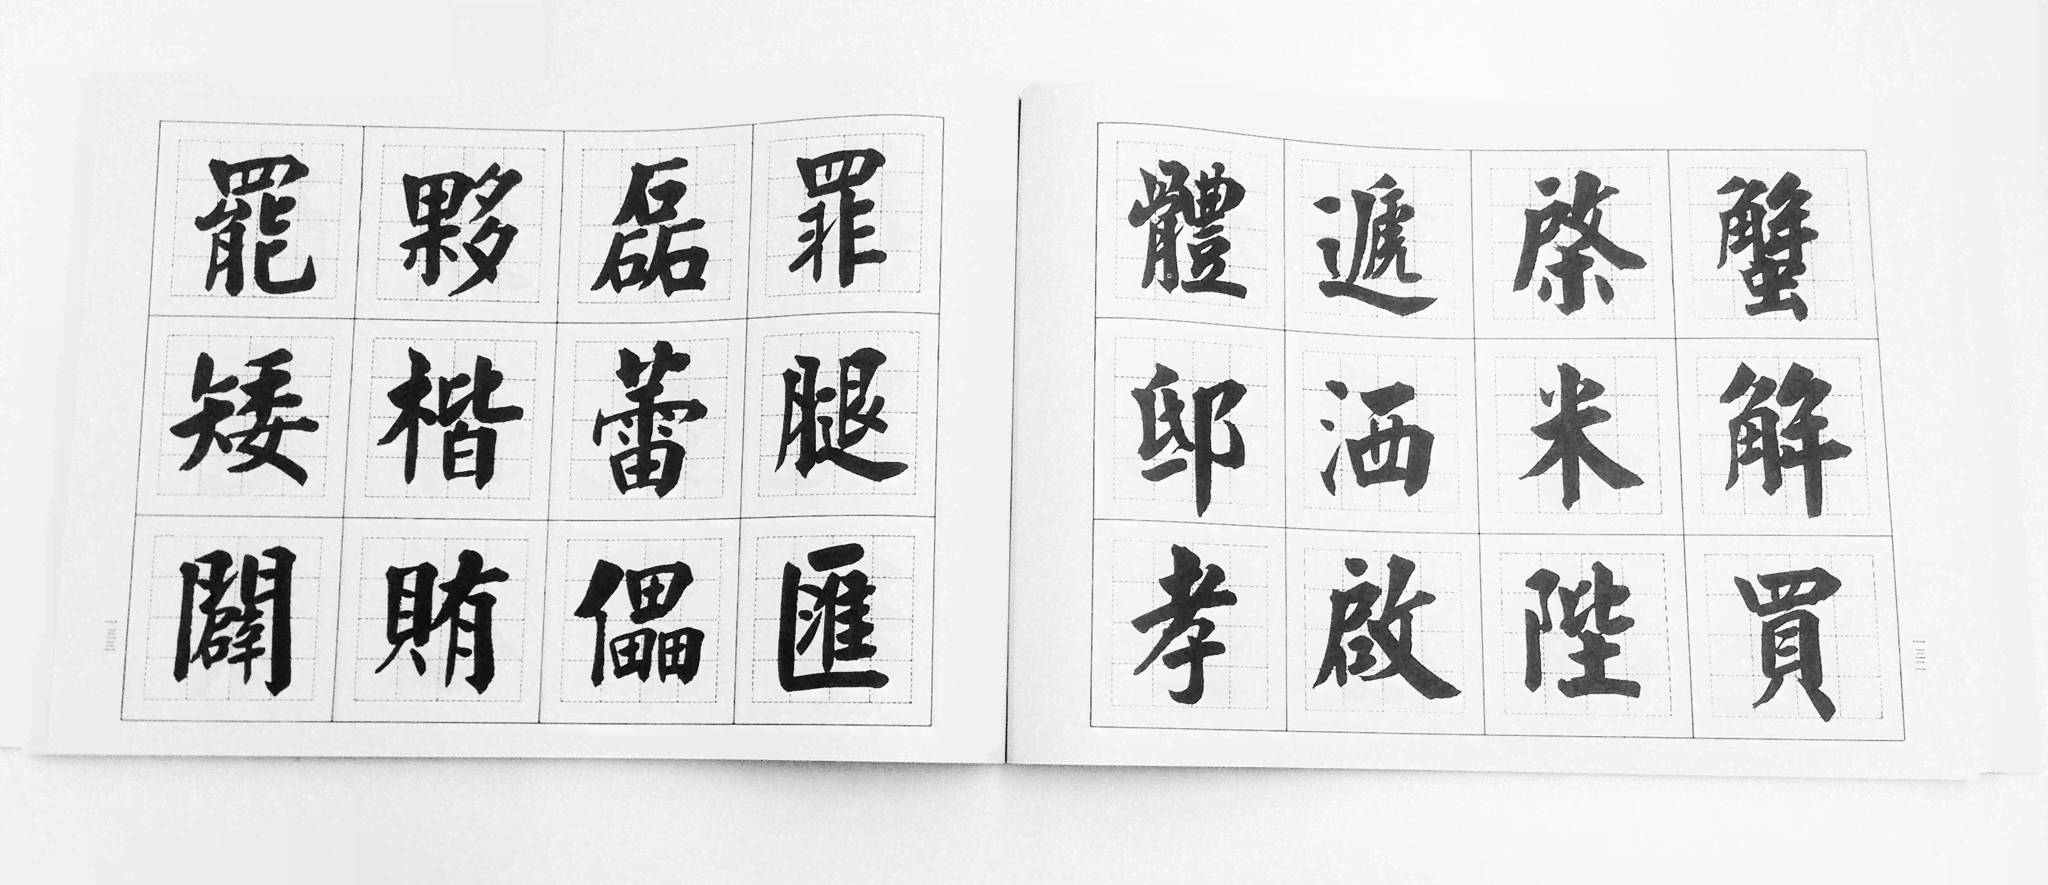 蟹解買
棨米陛
遞洒啟
體邸孝
罪腿匯
磊蕾儡
夥楷賄
罷矮闢